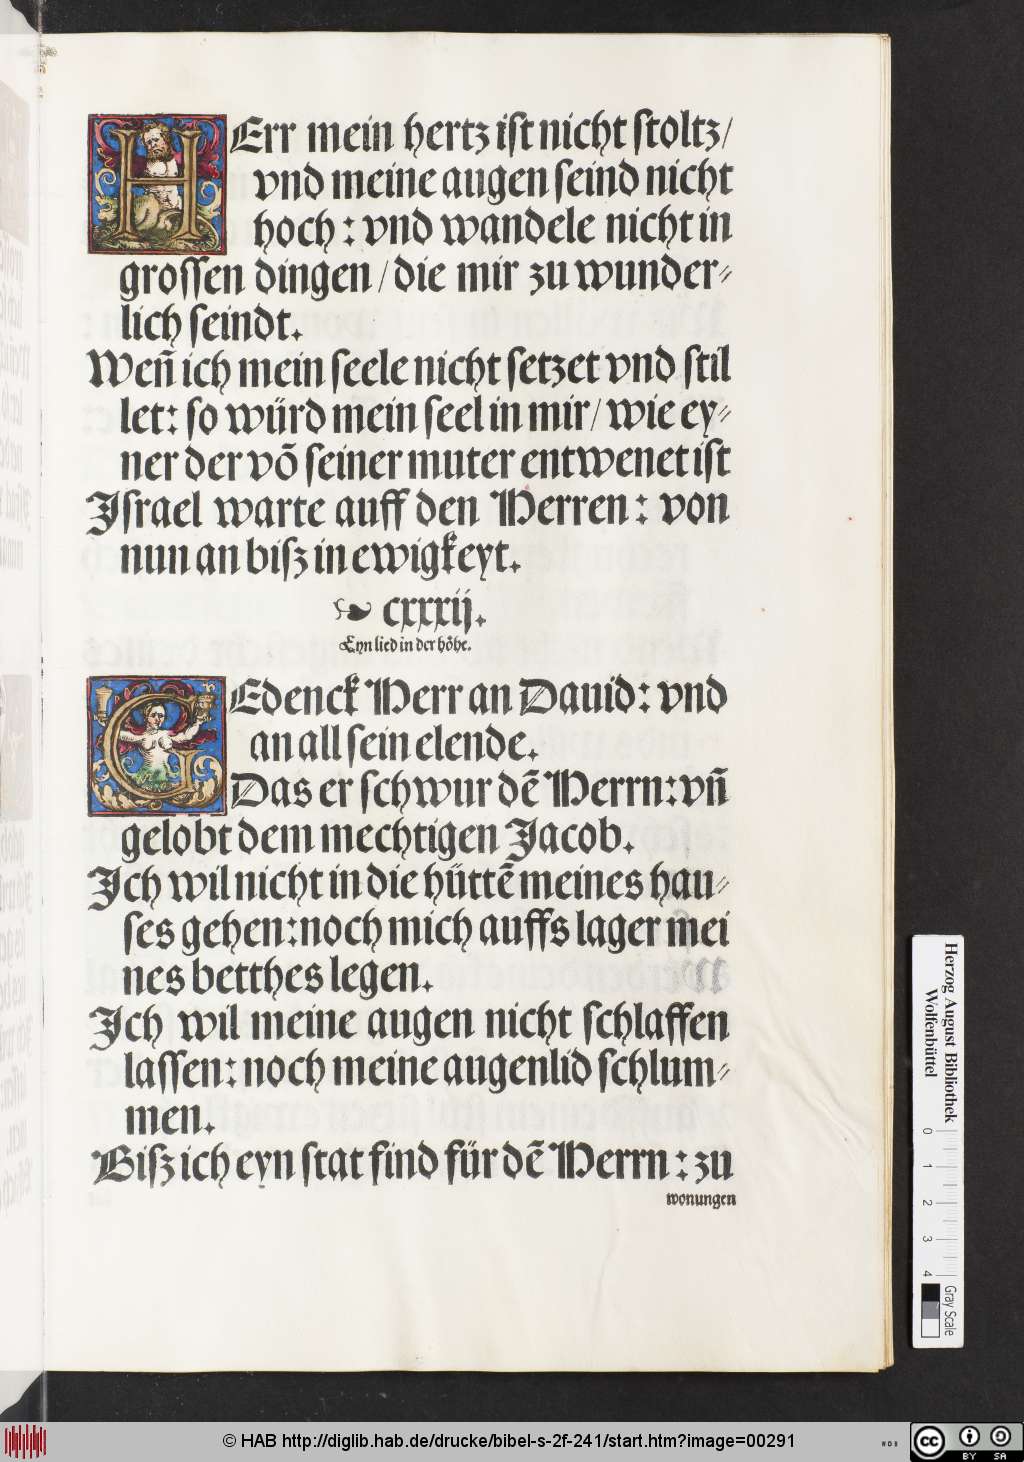 HErr mein hertz ist nicht stoltz/
vnd meine augen seind nicht
hoch : vnd wandele nicht in
grossen dingen / die mir zu wunder⸗
lich seindt.
Weñ ich mein seele nicht setzet vnd stil
let: so würd mein seel in mir/ wie ey⸗
ner der võ seiner muter entwenet ist
Israel warte auff den Herren : von
nun an bisz in ewigkeyt.
❧ cxxxij.
Eyn lied in der höhe.
GEdenck Herr an Dauid: vnd
an all sein elende.
Das er schwur dẽ Herrn: vñ
gelobt dem mechtigen Jacob.
Ich wil nicht in die hüttẽ meines hau⸗
ses gehen: noch mich auffs lager mei
nes betthes legen.
Ich wil meine augen nicht schlaffen
lassen: noch meine augenlid schlum⸗
men.
Bisz ich eyn stat find für dẽ Herrn : zu
wonungen
Herzog August Bibliothek
Wolfenbüttel
0 1 2 3 4
Gray Scale
© HAB http://diglib.hab.de/drucke/bibel-s-2f-241/start.htm?image=00291
WDB
cc BY SA